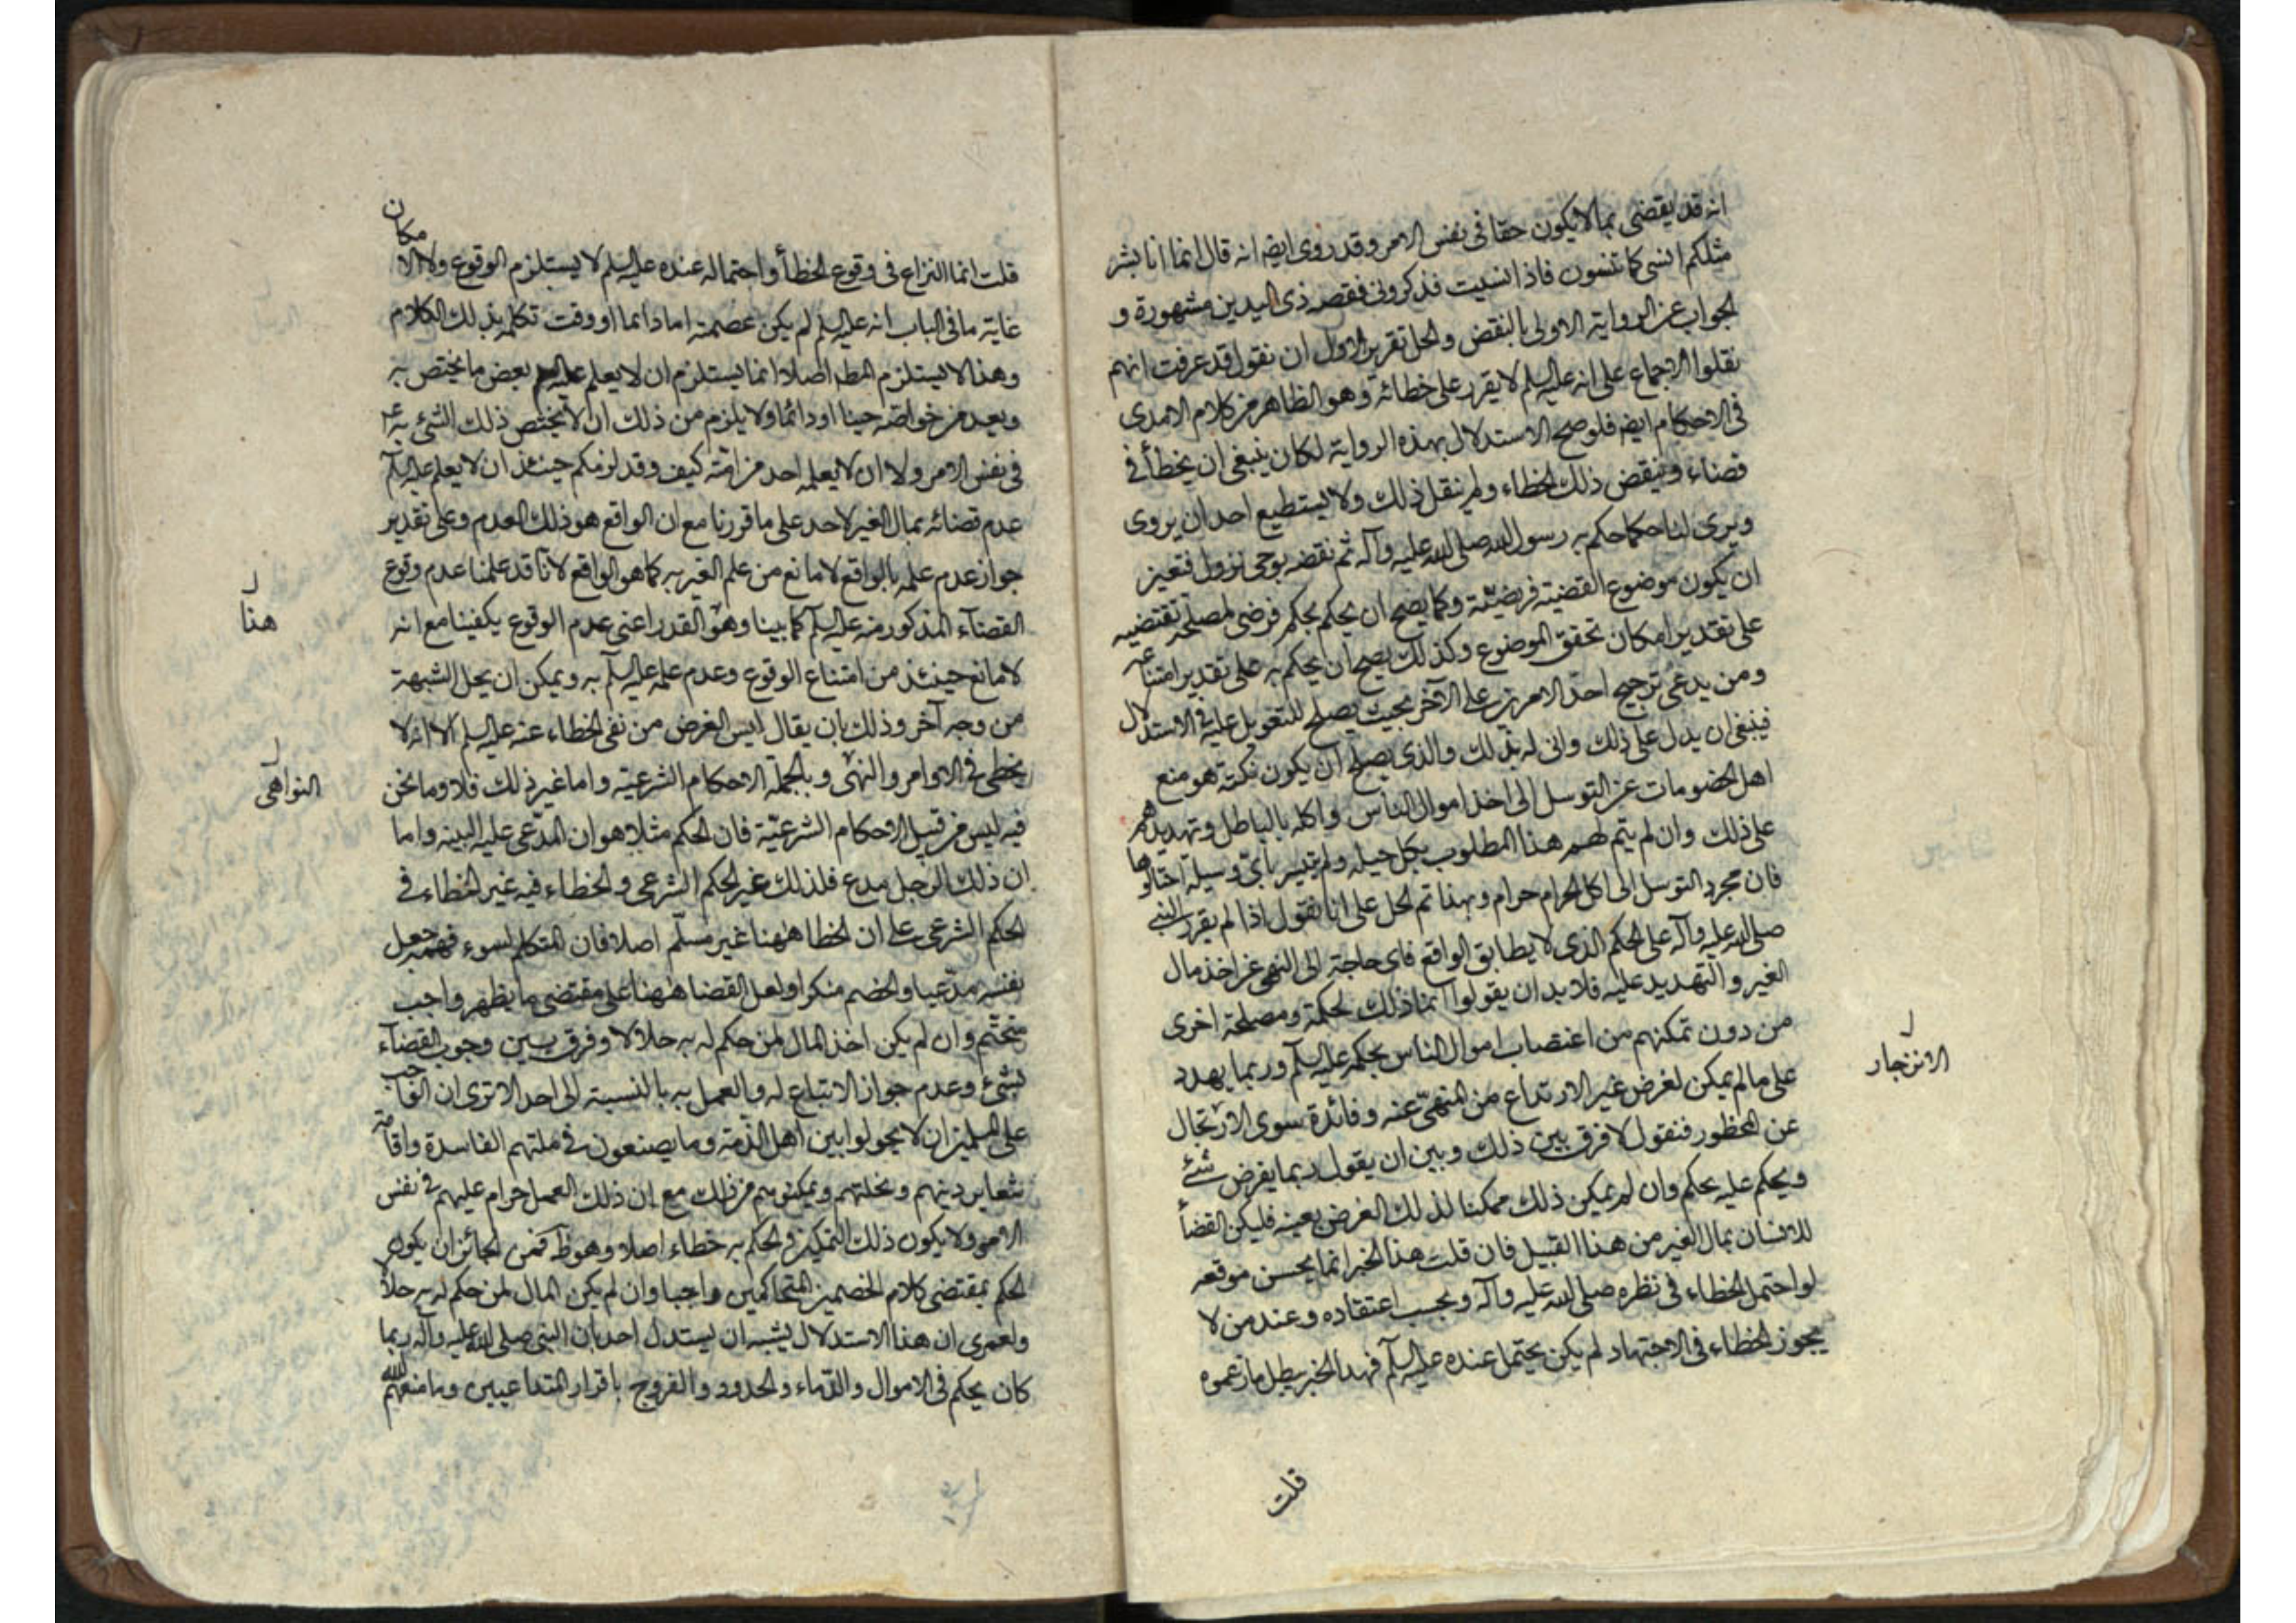 انه قد يقضى بما لا يكون حقا فى نفس الامر وقد روى ايضه انه قال انما انا بشر
مثلكم انسى كما تنسون فاذا نسيت فذكرونى فقصه ذى اليدين مشهورة و
الجواب عن الرواية الاولى بالنقض والحل تقرير الاول ان نقول قد عرفت انهم
نقلوا الاجماع على انه عليه السلم لا يقرر على خطائه وهو الظاهر من كلام الامدى
فى الاحكام ايضه فلو صح الاستدلال بهذه الرواية لكان ينبغى ان يخطأ فى
قضاء وينقض ذلك الخطاء ولم ينقل ذلك ولا يستطيع احد ان يروى
ويرى لنا حكما حكم به رسول الله صلى الله عليه وآله ثم نقضه بوحى نزول فتعين
ان يكون موضوع القضية فرضية وكما يصح ان يحكم بحكم فرضى لمصلحة تقتضيه
على تقدير امكان تحقق الموضوع وكذلك يصح ان يحكم به على تقدير امتناعه
ومن يدعى ترجيح احد الامرين على الآخر بحيث يصلح للتعويل عليه فى الاستدلال
فينبغى ان يدل على ذلك وانى له بذلك والذى يصلح ان يكون نكتة هو منع
اهل الخصومات عن التوسل الى اخذ اموال الناس واكله بالباطل وتهديدهم
على ذلك وان لم يتم لهم هذا المطلوب بكل حيلة ولم يتيسر باى وسيلة احتالوها
فان مجرد التوسل الى اكل الحرام حرام وبهذا تم الحل على انا نقول اذا لم يقرر النبى
صلى الله عليه وآله على الحكم الذى لا يطابق الواقع فاى حاجة الى النهى عن اخذ مال
الغير والتهديد عليه فلا بد ان يقولوا انما ذلك لحكمة ومصلحة اخرى
من دون تمكنهم من اغتصاب اموال الناس بحكمه عليه السلم وربما يهدد
على ما لم يمكن لغرض غير الارتداع من المنهى عنه وفائدة سوى الارتحال
الانزجار
عن المحظور فنقول لا فرق بين ذلك وبين ان يقول ربما يفرض شئ
ويحكم عليه بحكم وان لم يكن ذلك ممكنا لذلك الغرض بعينه فليكن القضأ
للانسان بمال الغير من هذا القبيل فان قلت هذا الخبر انما يحسن موقعه
لو احتمل الخطاء فى نظره صلى الله عليه وآله وبحسب اعتقاده وعند من لا
يجوز الخطاء فى الاجتهاد لم يكن يحتمل عنده عليه السلم فهذا الخبر يبطل ما زعموه
قلت
قلت انما النزاع فى وقوع الخطأ واحتماله عنده عليه السلم لا يستلزم الوقوع ولا الامكان
غاية ما فى الباب انه عليه السلم لم يكن عصمة اما دائما او وقت تكلمه بذلك الكلام
وهذا لا يستلزم المطـ اصلا انما يستلزم ان لا يعلم عليه السلم بعض ما يختص به
ويعد من خواصه حينا او دائما ولا يلزم من ذلك ان لا يختص ذلك الشئ به
فى نفس الامر ولا ان لا يعلمه احد من امته كيف وقد لزمكم حينئذ ان لا يعلم عليه السلم
عدم قضائه بمال الغير لاحد على ما قررنا مع ان الواقع هو ذلك العدم وعلى تقدير
جواز عدم علمه بالواقع لا مانع من علم الغير به كما هو الواقع لانا قد علمنا عدم وقوع
القضاء المذكور منه عليه السلم كما بينا وهو القدر اعنى عدم الوقوع يكفينا مع انه
هنا
لا مانع حينئذ من امتناع الوقوع وعدم علمه عليه السلم به ويمكن ان يحل الشبهة
من وجه آخر وذلك بان يقال ليس الغرض من نفى الخطاء عنه عليه السلم الا انه لا
يخطى فى الاوامر والنهى وبالجملة الاحكام الشرعية واما غير ذلك فلا وما نحن
النواهى
فيه ليس من قبيل الاحكام الشرعية فان الحكم مثلا هو ان المدعى عليه البينه واما
ان ذلك الرجل مدع فلذلك غير الحكم الشرعى والخطاء فيه غير الخطاء فى
الحكم الشرعى على ان الخطا ههنا غير مسلم اصلا فان المتكلم لسوء فهمه جعل
نفسه مدعيا والخصم منكرا ولعل القضا ههنا على مقتضى ما يظهر واجب
متحتم وان لم يكن اخذ المال لمن حكم له به حلالا وفرق بين وجوب القضاء
بشئ وعدم جواز الاتباع له والعمل به بالنسبة الى احد الا ترى ان الواجب
على المسلمين ان لا يحولوا بين اهل الذمة وما يصنعون فى ملتهم الفاسدة واقامة
شعاير دينهم ونحلتهم وتمكينهم من ذلك مع ان ذلك العمل حرام عليهم فى نفس
الامر ولا يكون ذلك التمكين والحكم به خطاء اصلا وهو ظ فمن الجائز ان يكون
الحكم بمقتضى كلام الخصمين المتحاكمين واجبا وان لم يكن المال لمن حكم له به حلالا
ولعمرى ان هذا الاستدلال يشبه ان يستدل احد بان النبى صلى الله عليه وآله ربما
كان يحكم فى الاموال والدماء والحدود والفروج باقرار المتداعيين وما منعهم الله